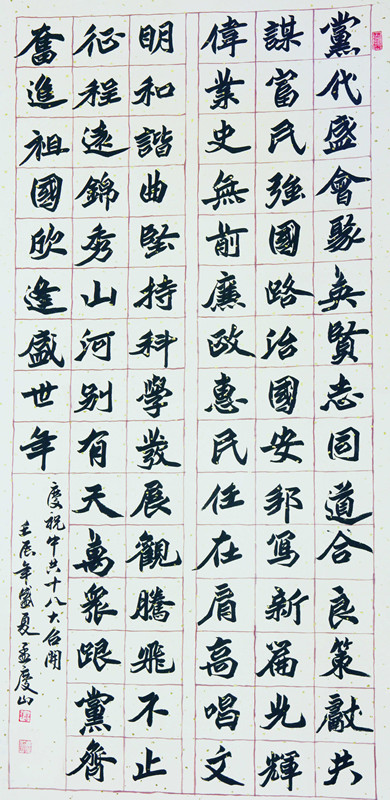 黨代盛會聚英賢志同道合良策獻共
謀富民強國路治國安邦寫新篇光輝
偉業史無前廉政惠民任在肩高唱文
明和諧曲堅持科學發展觀騰飛不止
征程遠錦秀山河別有天萬眾跟黨齊
奮進祖國欣逢盛世年
慶祝中共十八大召開
壬辰年盛夏孟慶山